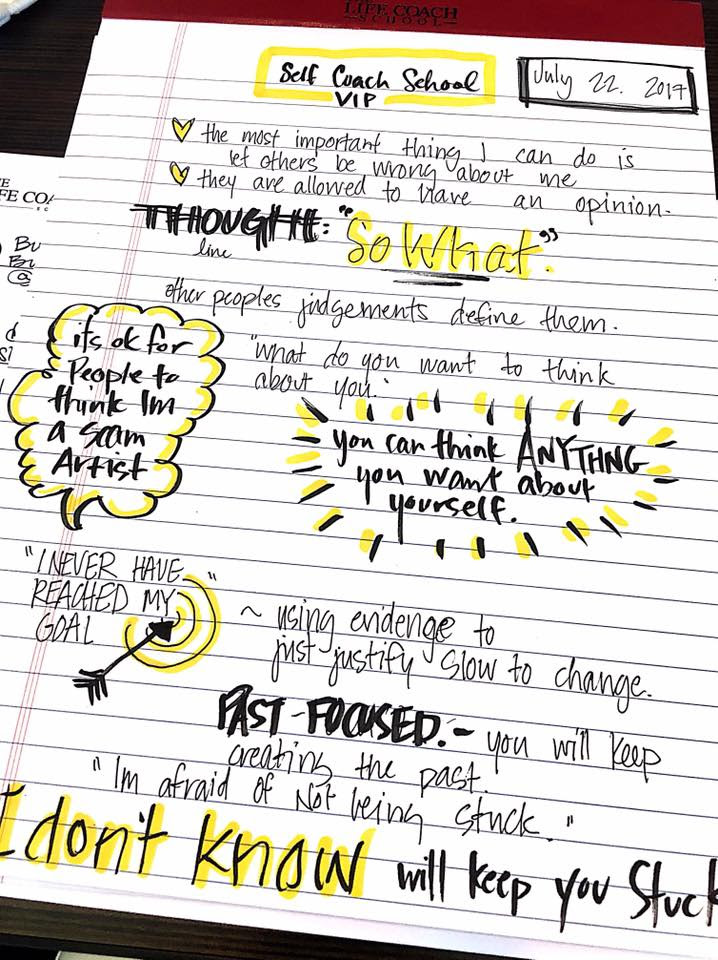 LIFE COACH
SCHOOL
Self Coach School
VIP
July 22. 2017
the most important thing I can do is
let others be wrong about me
they are allowed to have an opinion.
THOUGHT: "So What."
line
other peoples judgements define them.
"what do you want to think
about you."
its ok for
People to
think Im
a scam
Artist
you can think ANYTHNG
you want about
yourself.
"I NEVER HAVE
REACHED MY
GOAL"
~ using evidenge to
just justify slow to change.
PAST-FOCUSED.- you will keep
creating the past.
"Im afraid of Not being stuck."
I don't know will keep you Stuck
FE COA